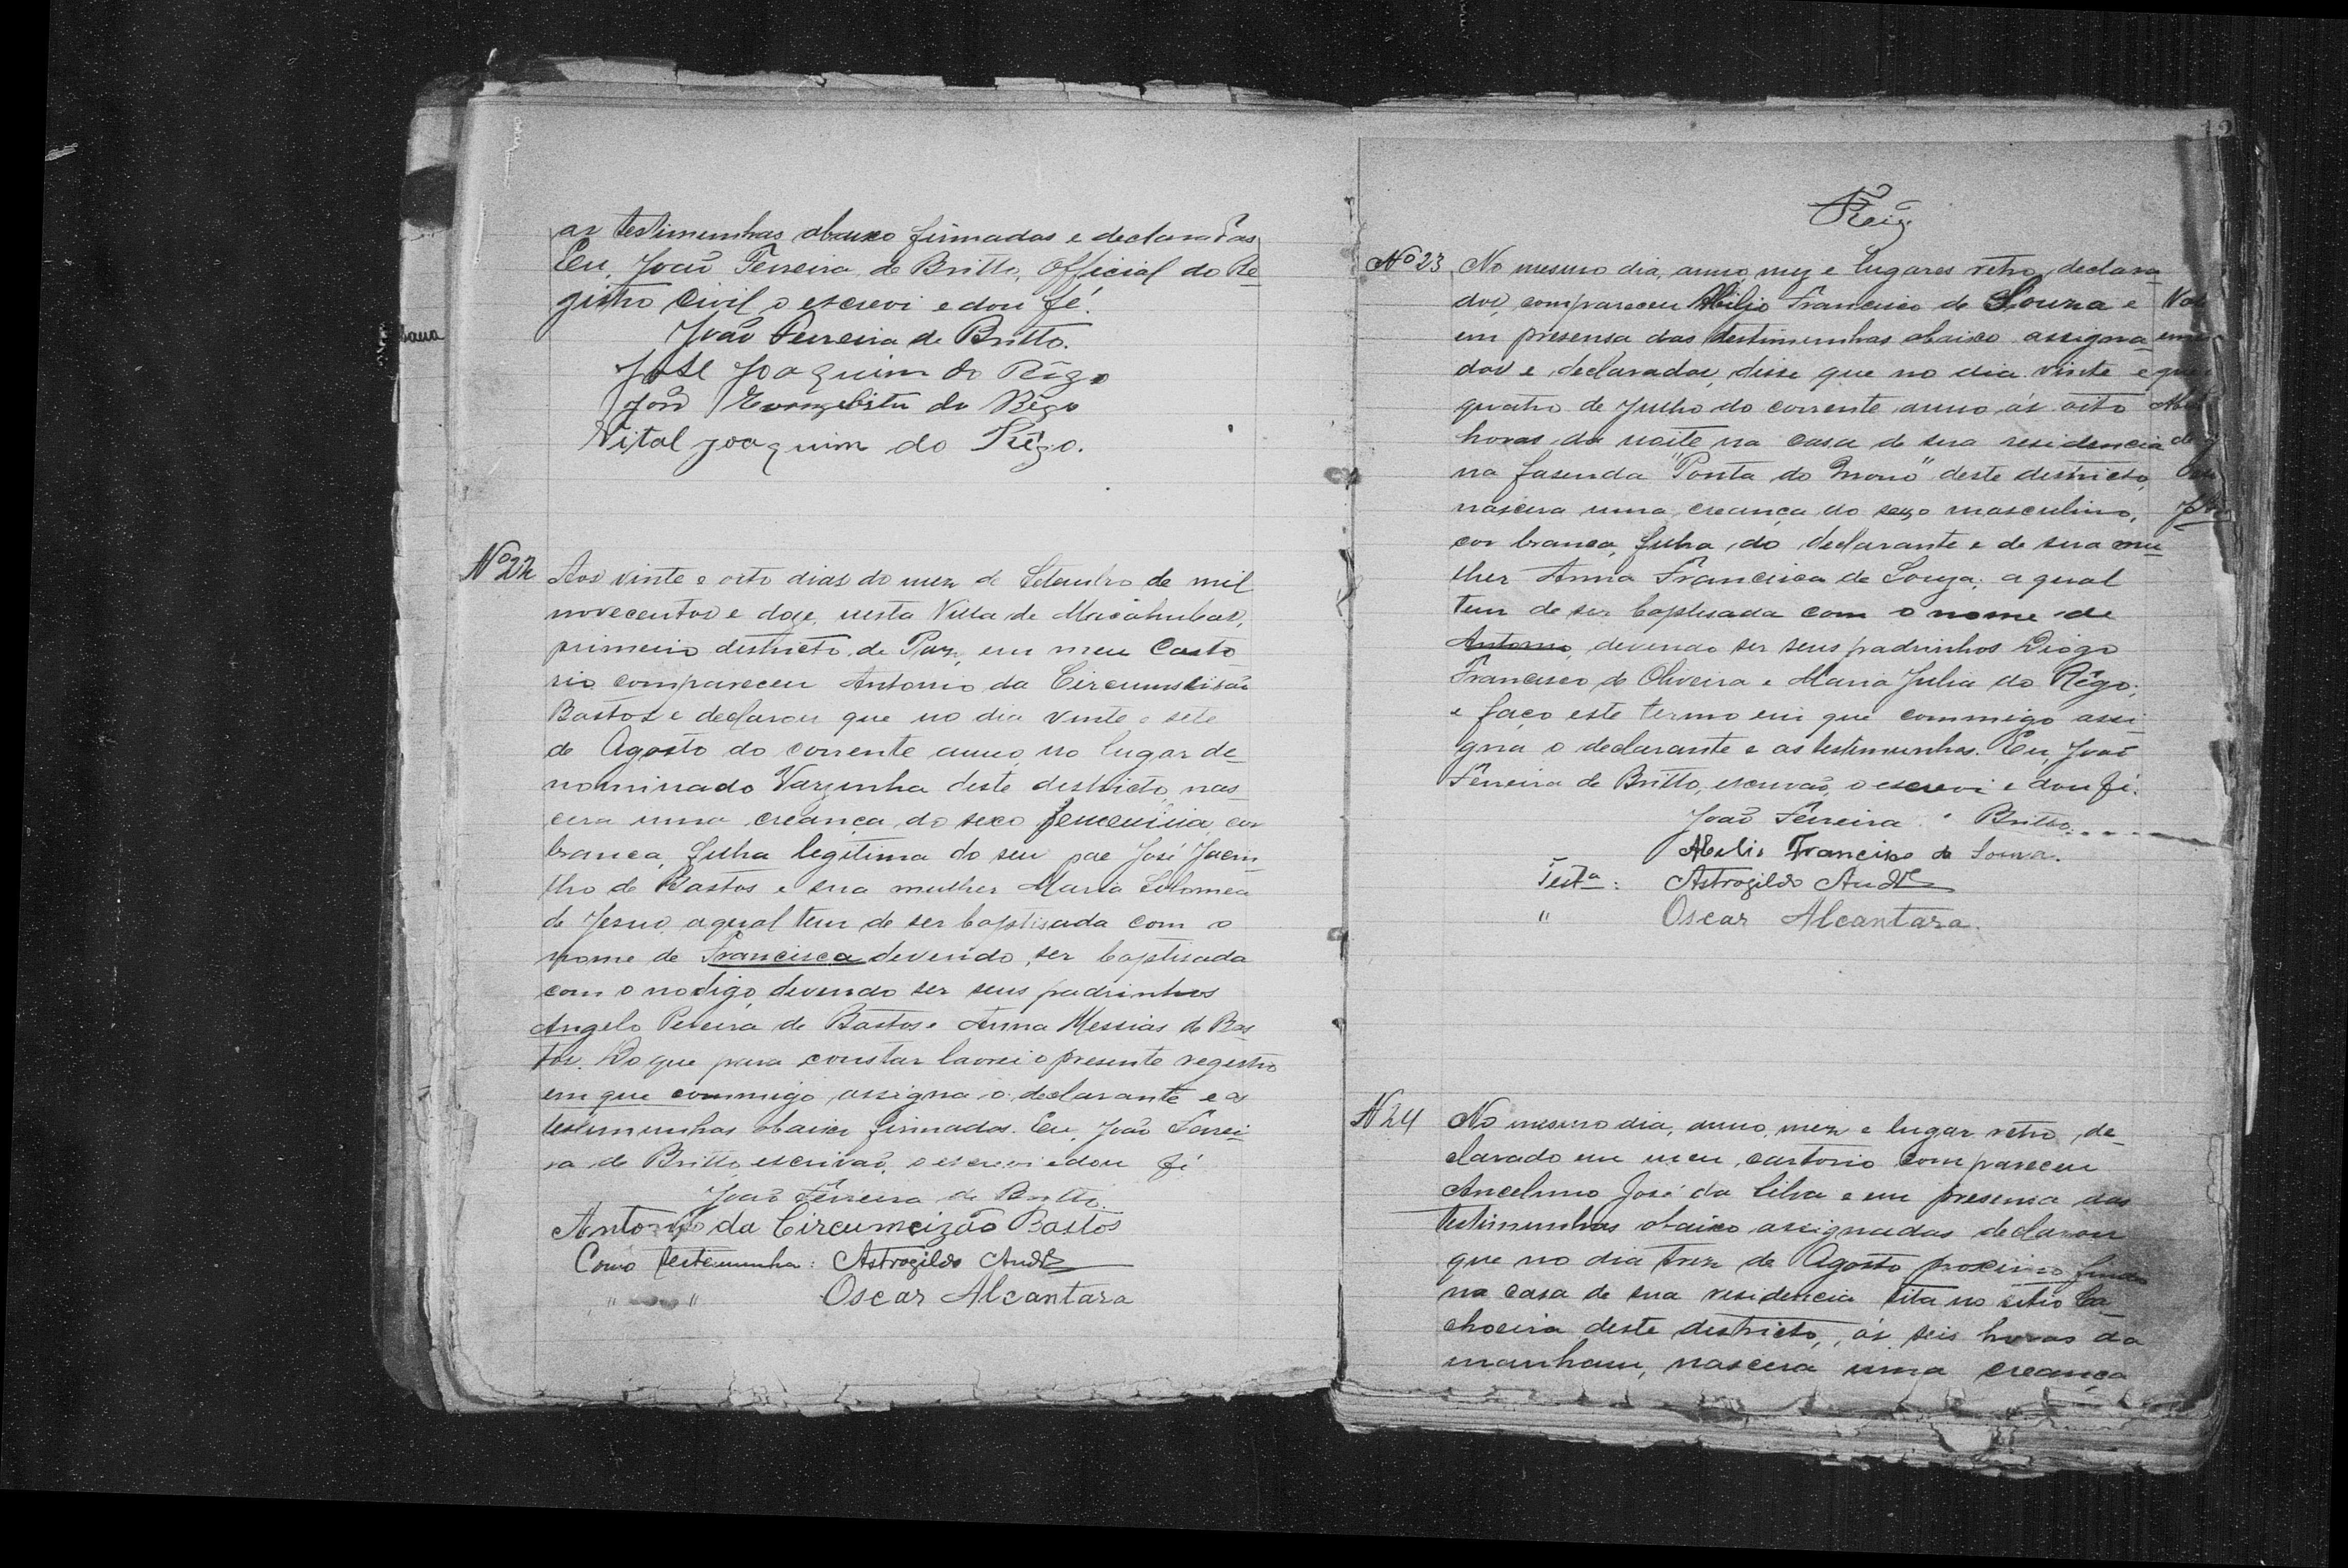 as testimunhas abaixo firmadas e declaradas
Eu, João Ferreira de Britto, Official do Re
gistro Civil o escrevi e dou fé.
João Ferreira de Britto.
José Joaquim do Rêgo
João Evangelista do Rêgo
Vital Joaquim do Rêgo.
Nº 22 Aos vinte e oito dias do mez de Setembro de mil
novecentos e doze, nesta Villa de Macahubas,
primeiro destricto de Paz, em meu Carto
rio compareceu Antonio da Circumsisão
Bastos e declarou que no dia vinte e sete
de Agosto do corrente anno, no lugar de_
nominado Varzinha deste destricto, nas_
cera uma creança do sexo femenina, cor
branca, filha legitima do seu pae José Jacin
tho de Bastos e sua mulher Maria Solomea
de Jesus, a qual tem de ser baptisada com o
nome de Francisca devendo ser baptisada
com o nodigo, devendo ser seus padrinhos
Angelo Pereira de Bastos e Anna Messias de Bas
tos. Do que para constar lavrei o presente registro
em que commigo assigna o declarante e as
testimunhas abaixo firmados. Eu, João Ferrei_
ra de Britto escrivaõ, o escrevi e dou fé
João Ferreira de Britto.
Antonio da Circumcizão Bastos
Como testemunha: Astrogildo Andr
" " Oscar Alcantara
Nº 23 No mesmo dia, anno, mez e lugares retro declara_
dos, compareceu Abilio Francisco de Souza e
em presensa das testimunhas abaixo assigna_
dos e declarados, disse que no dia vinte e
quatro de Julho do corrente anno ás oito
horas da noite na casa de sua residencia
na fasenda "Ponta do Morro" deste destricto,
nascera uma creança do sexo masculino,
cor branca, filha do declarante e de sua mu_
lher Anna Francisca de Souza; a qual
tem de ser baptisada com o nome de
Antonio, devendo ser seus padrinhos Diogo
Francisco de Oliveira e Maria Julia do Rêgo;
e faço este termo em que commigo assi_
gna o declarante e as testimunhas. Eu, João
Ferreira de Britto, escrivaõ, o escrevi e dou fé.
João Ferreira Britto
Abelio Francisco de Souza.
Testª: Astrogildo Andr
" Oscar Alcantara.
N 24 No mesmo dia, anno, mez e lugar retro de_
clarado em meu cartorio compareceu
Ancelmo José da Silva e em presensa das
testimunhas abaixo assignadas declarou
que no dia treze de Agosto proximo findo
na casa de sua residencia sita no sitio Ca_
choeira deste destricto, ás seis horas da
manham, nascera uma creança